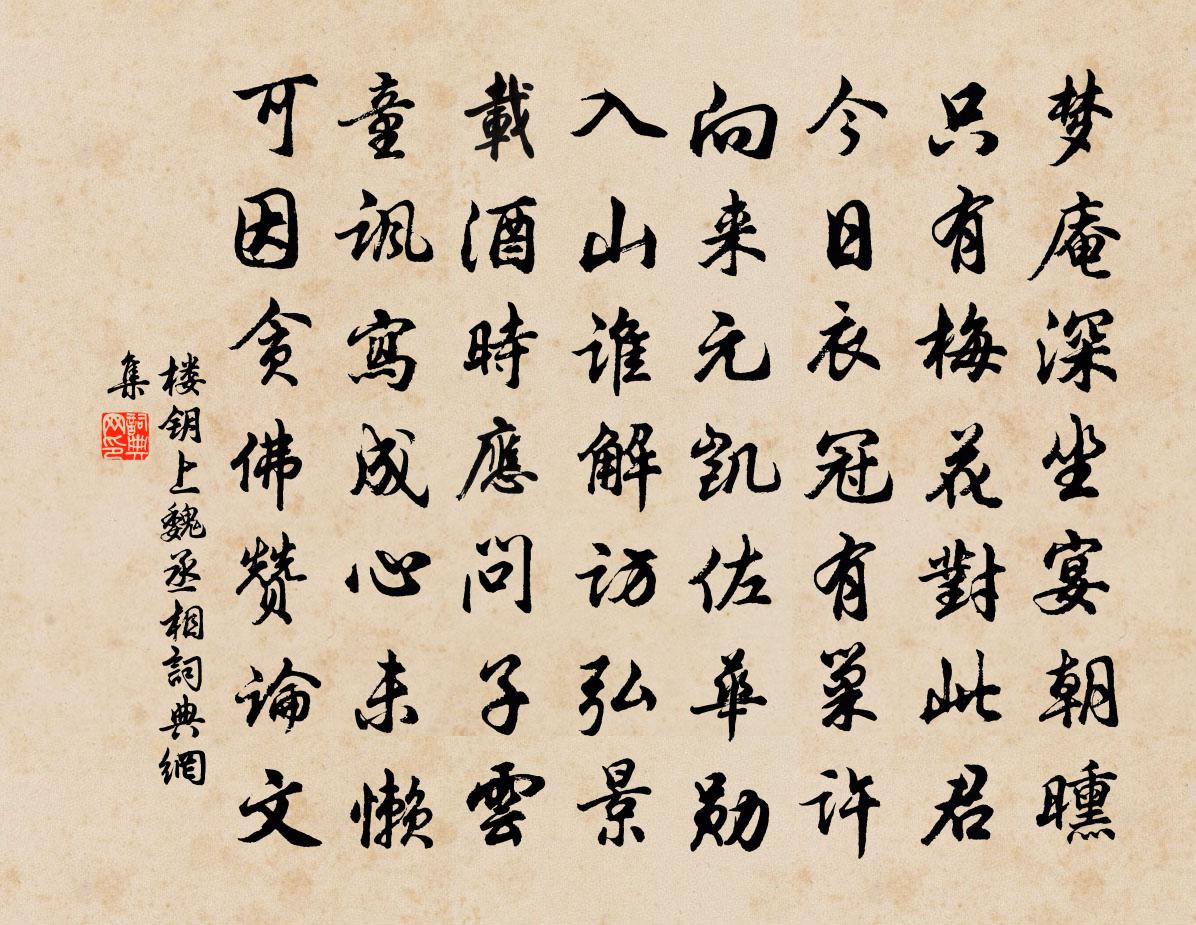 梦庵深坐宴朝曛
只有梅花對此君
今日衣冠有巢許
向来元凯佐華勋
入山谁解访弘景
載酒時應問子雲
童讽寫成心未懒
可因贪佛赞論文
楼钥上魏丞相詞典網
集
詞典
网印